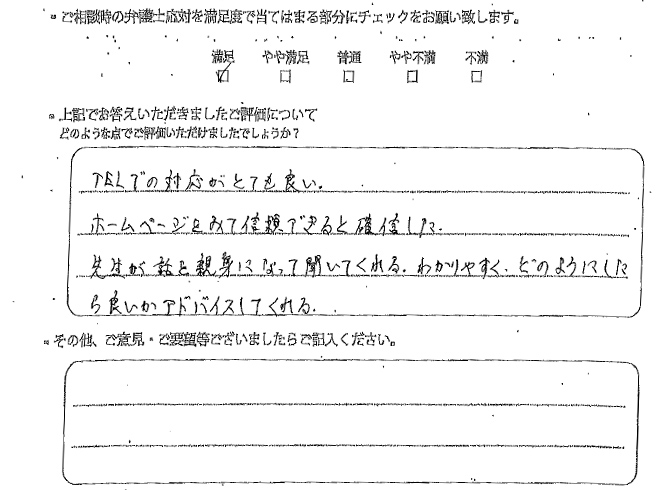 ご相談時の弁護士応対を満足度で当てはまる部分にチェックをお願い致します。
満足 やや満足 普通 やや不満 不満
☑ □ □ □ □
上記でお答えいただきましたご評価について
どのような点でご評価いただけましたでしょうか?
TELでの対応がとても良い.
ホームページをみて信頼できると確信した.
先生が話を親身になって聞いてくれる. わかりやすく、どのようにした
ら良いかアドバイスしてくれる.
その他、ご意見・ご要望等ございましたらご記入ください。